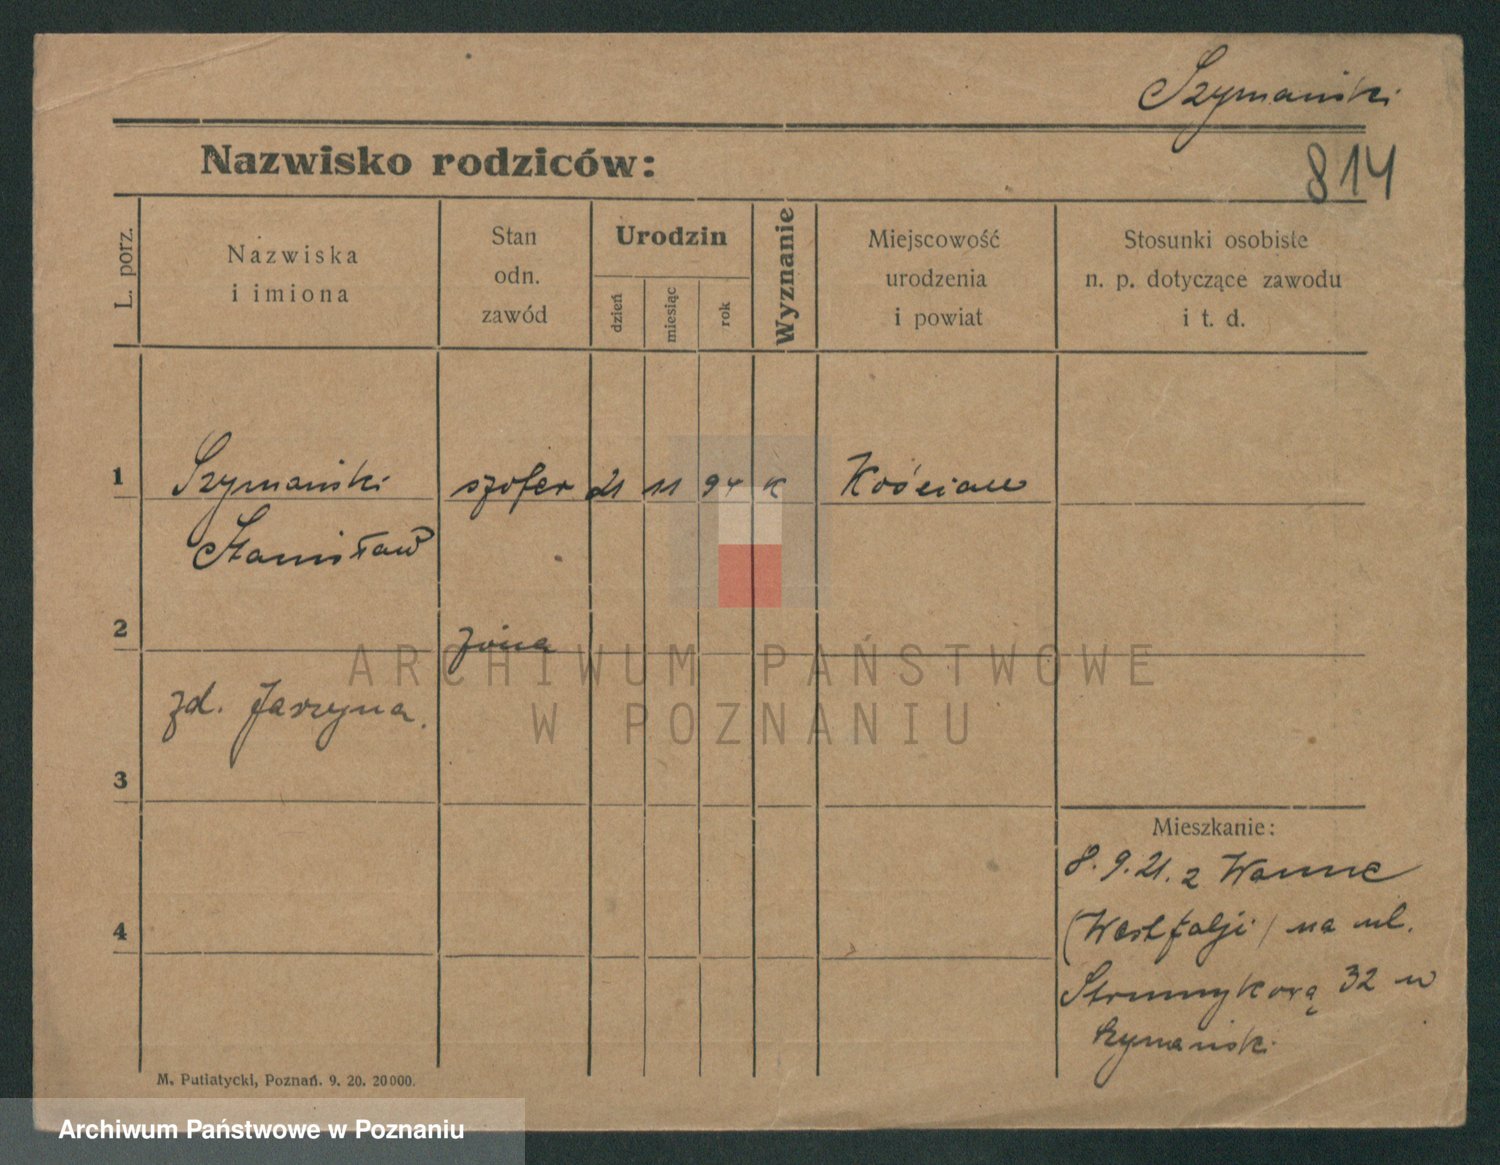 Szymański
814
Nazwisko rodziców:
L. porz.
Nazwiska
i imiona
Stan
odn.
zawód
Urodzin
dzień
miesiąc
rok
Wyznanie
Miejscowość
urodzenia
i powiat
Stosunki osobiste
n. p. dotyczące zawodu
i t. d.
1 Szymański szofer 21 11 94 K Kościan
Stanisław
2 żona
zd. Jarzyna.
3
4
Mieszkanie:
8.9.21. z Wanne
(Westfalji) na ul.
Strumykową 32 u
Szymański
M. Putiatycki, Poznań. 9. 20. 20000.
ARCHIWUM PAŃSTWOWE
W POZNANIU
Archiwum Państwowe w Poznaniu